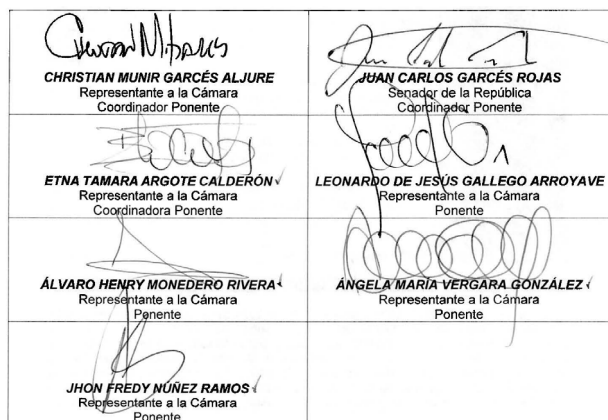 CHRISTIAN MUNIR GARCÉS ALJURE
Representante a la Cámara
Coordinador Ponente
JUAN CARLOS GARCÉS ROJAS
Senador de la República
Coordinador Ponente
ETNA TAMARA ARGOTE CALDERÓN
Representante a la Cámara
Coordinadora Ponente
LEONARDO DE JESÚS GALLEGO ARROYAVE
Representante a la Cámara
Ponente
ÁLVARO HENRY MONEDERO RIVERA
Representante a la Cámara
Ponente
ÁNGELA MARÍA VERGARA GONZÁLEZ
Representante a la Cámara
Ponente
JHON FREDY NÚÑEZ RAMOS
Representante a la Cámara
Ponente